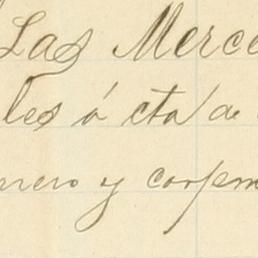 Las Merce
les á cta de
nero y carpen